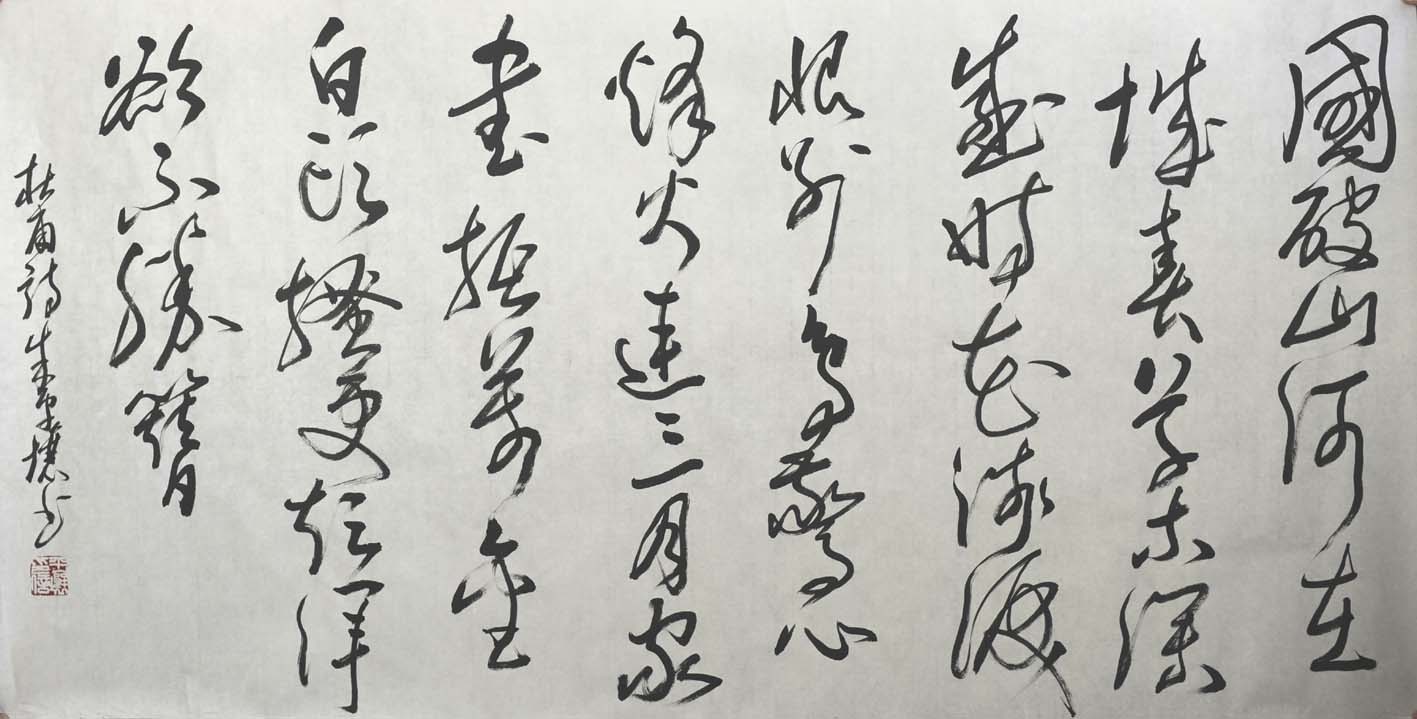 國破山河在
城春草木深
感時花濺淚
恨別鳥驚心
烽火連三月家
書抵萬金
白頭搔更短渾
欲不勝簪
杜甫詩